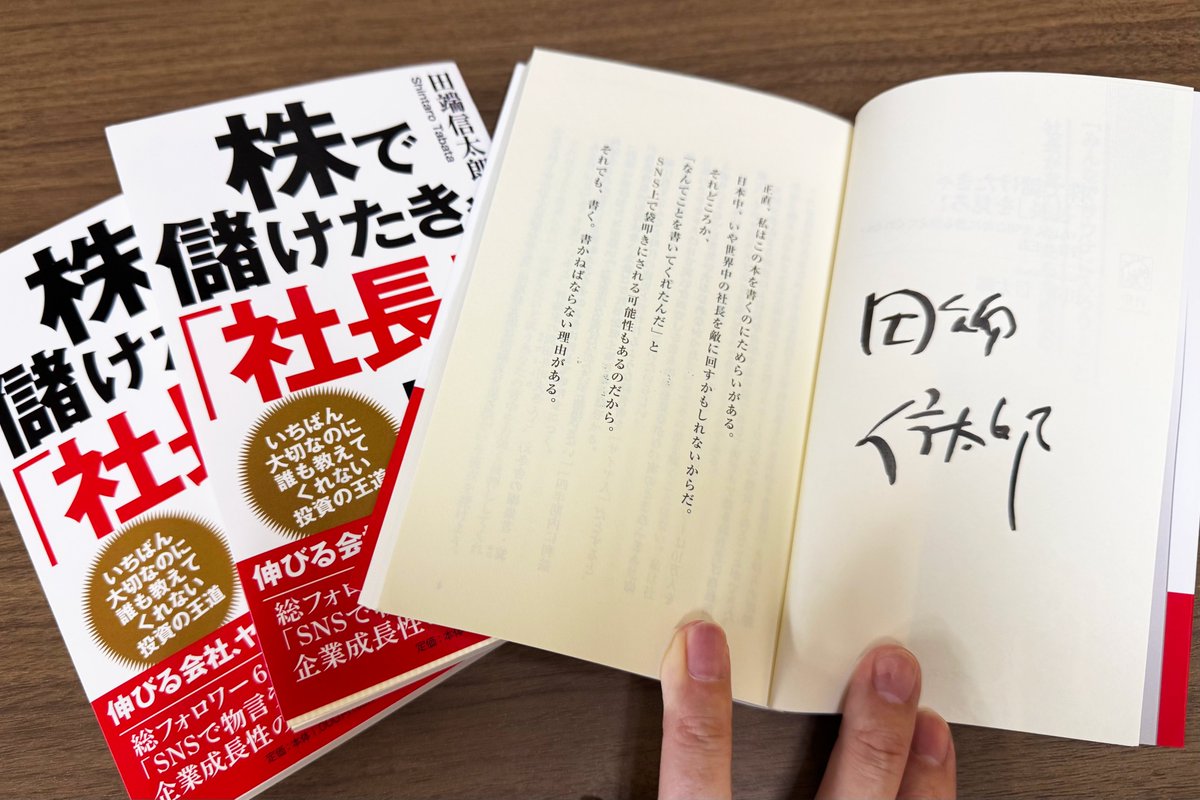 田端信太郎
Shintaro Tabata
株で
儲けたき
「社長
いちばん
大切なのに
誰も教えて
くれない
投資の王道
伸びる会社
総フォロ
「SNSで
企業成長性
定価
株
儲け
「社
いちばん
大切なのに
誰も教えて
くれない
投資の王道
伸びる会社、ヤ
総フォロワー6
「SNSで物言
企業成長性の
定価
正直、私はこの本を書くのにためらいがある。
日本中、いや世界中の社長を敵に回すかもしれないからだ。
それどころか、
「なんてことを書いてくれたんだ」と
SNS上で袋叩きにされる可能性もあるのだから。
それでも、書く。書かねばならない理由がある。
田端
信太郎